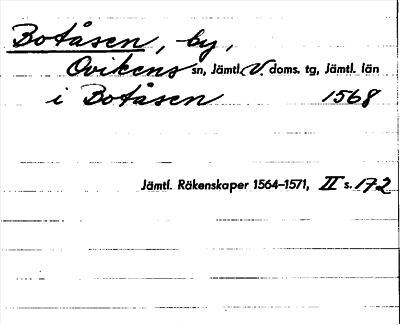 Botåsen, by,
Ovikens sn, Jämtl. V. doms. tg, Jämtl. län
i Botåsen 1568
Jämtl. Räkenskaper 1564–1571, II s. 172